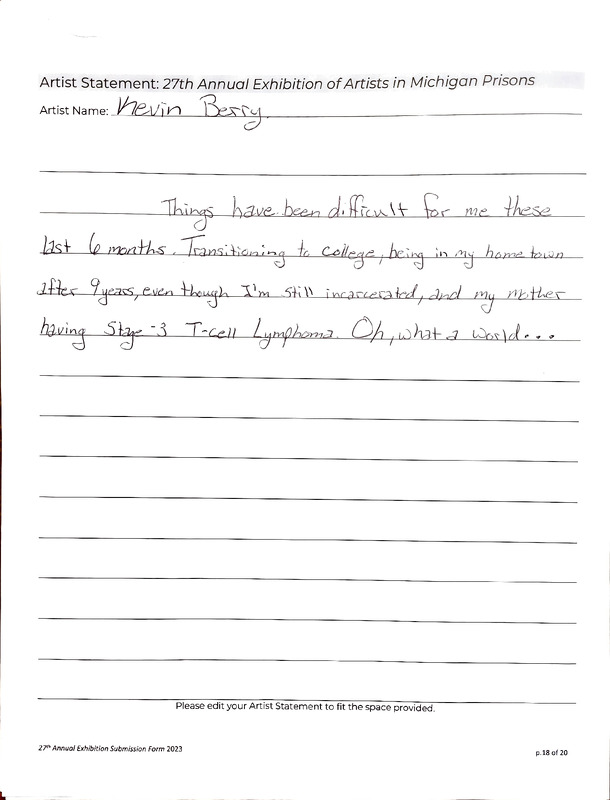 Artist Statement: 27th Annual Exhibition of Artists in Michigan Prisons
Artist Name: Kevin Berry
Things have been difficult for me these
last 6 months. Transitioning to college, being in my home town
after 9 years, even though I'm still incarcerated, and my mother
having Stage-3 T-cell Lymphoma. Oh, what a world...
Please edit your Artist Statement to fit the space provided.
27th Annual Exhibition Submission Form 2023
p.18 of 20